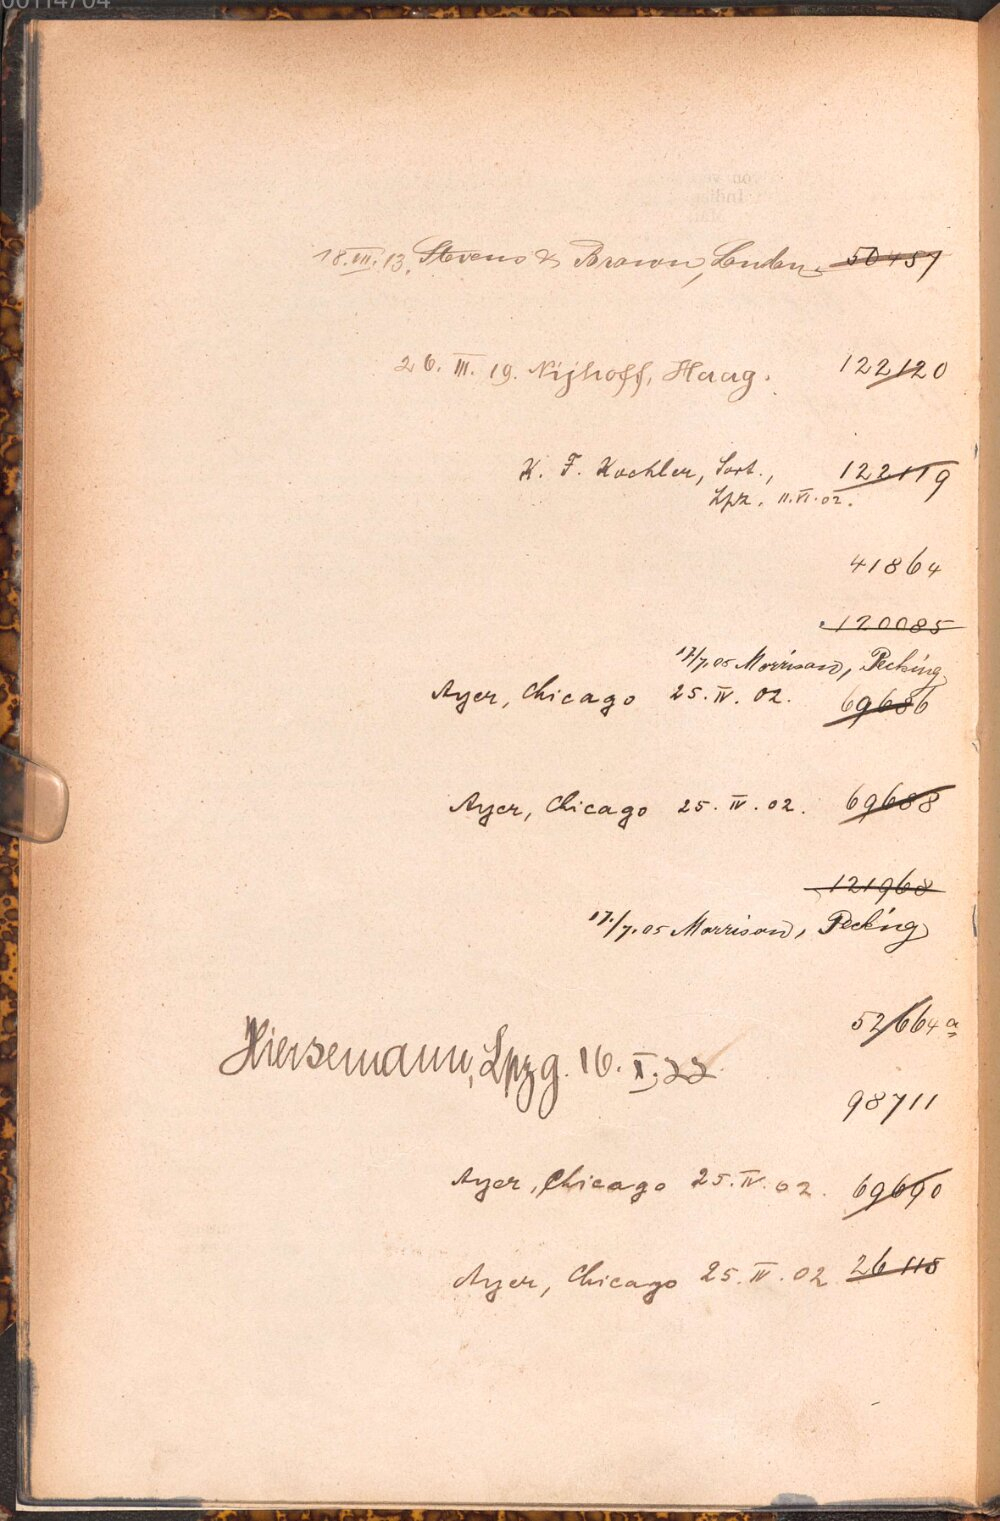 00114704
18.VII.13. Stevens & Brown, London. 50457
26. III. 19. Nijhoff, Haag. 122120
K. F. Koehler, Sort., 122119
Lpz. 11.VI.02.
41864
120085
17/7.05 Morrison, Pecking
Ayer, Chicago 25. IV. 02. 69686
Ayer, Chicago 25. IV. 02. 69688
121968
17./7.05 Morrison, Pecking
52664a
Hiersemann, Lpzg. 16. X. 22
98711
Ayer, Chicago 25. IV. 02. 69690
Ayer, Chicago 25. IV. 02 26118